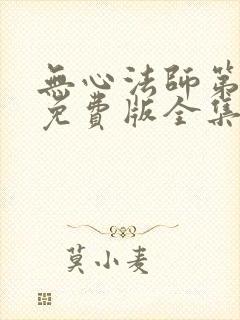 無心法師第
免費版全集
莫小麦